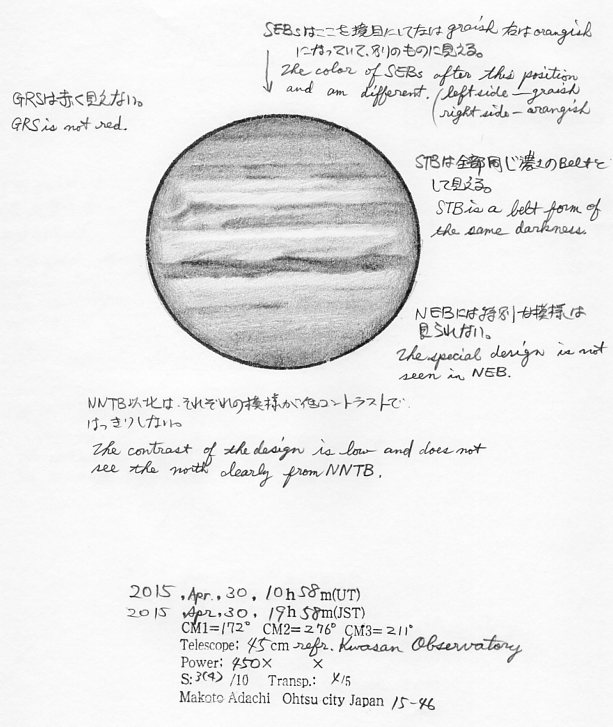 SEBsはここを境目にして左は graish 右は orangish
になっていて、別のものに見える。
The color of SEBs after this position
and am different. (left side — graish
right side — orangish
GRSは赤く見えない。
GRS is not red.
STBは全部同じ濃さのBeltと
して見える。
STB is a belt form of
the same darkness.
NEBには特別な模様は
見られない。
The special design is not
seen in NEB.
NNTB以北は、それぞれの模様が低コントラストで
はっきりしない。
The contrast of the design is low and does not
see the north clearly from NNTB.
2015, Apr., 30, 10h 58m(UT)
2015, Apr, 30, 19h 58m(JST)
CM1=172° CM2=276° CM3=211°
Telescope; 45 cm refr. Kwasan Observatory
Power; 450× ×
S: 3(4) /10 Transp.: /5
Makoto Adachi Ohtsu city Japan 15-46